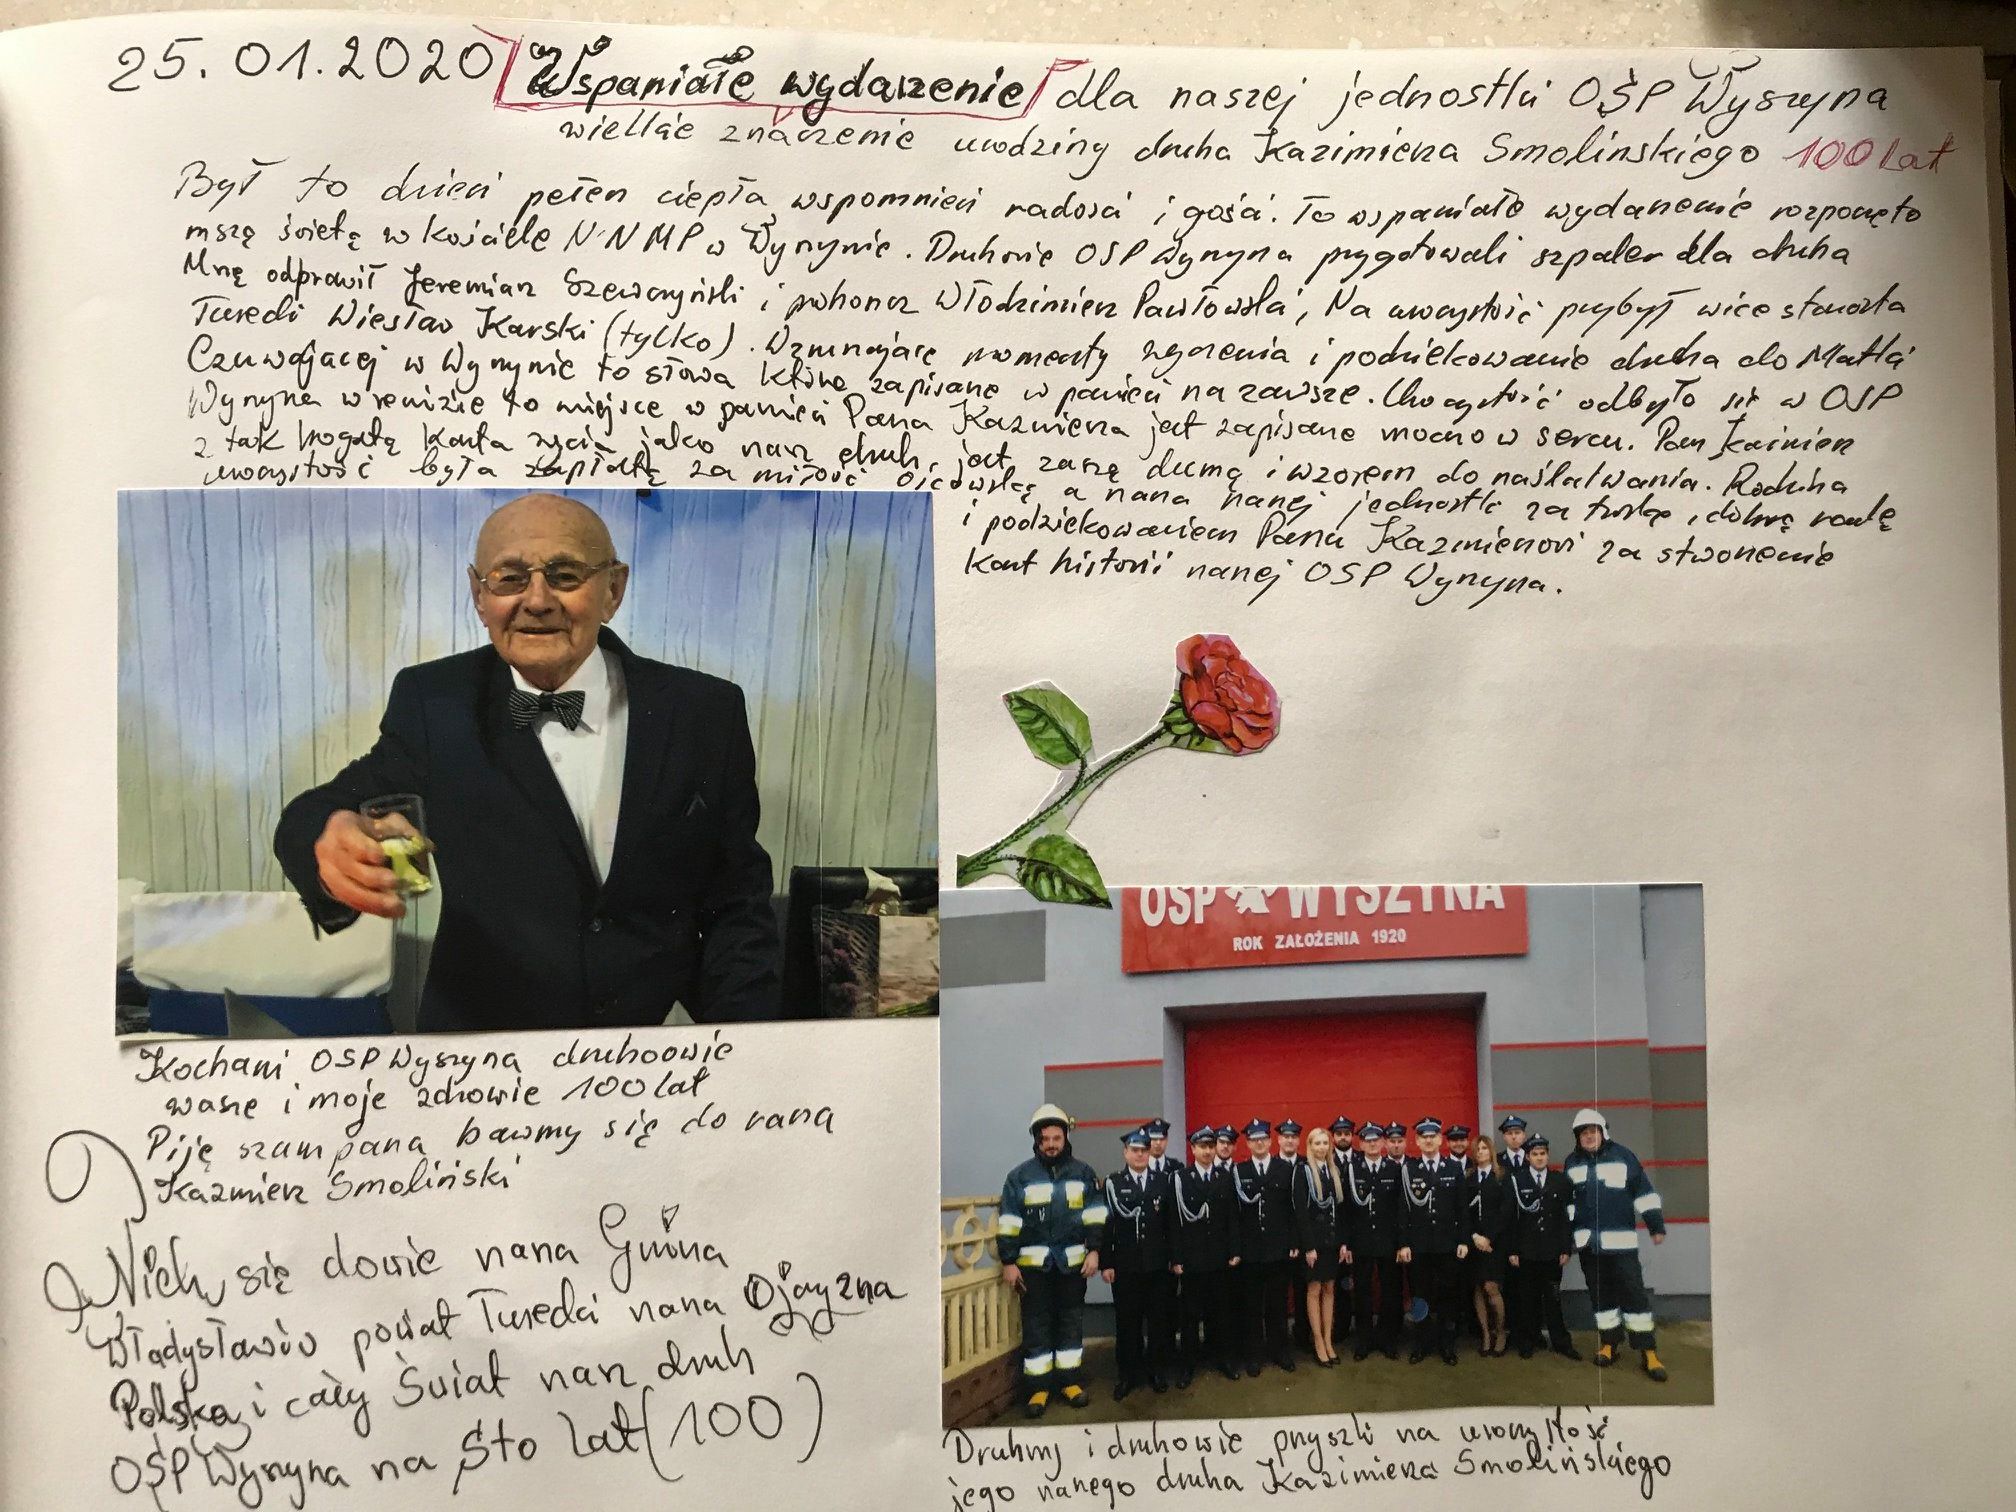 25.01.2020 Wspaniałe wydarzenie dla naszej jednostki OSP Wyszyna
wielkie znaczenie urodziny druha Kazimierza Smolinskiego 100 lat
Był to dzień pełen ciepła, wspomnień radości i gości. To wspaniałe wydarzenie rozpoczęto
mszą świetą w kościele N N MP w Wyszynie. Druhowie OSP Wyszyna przygotowali szpaler dla druha
Mszę odprawił Jeremiasz Szewczyński i proboszcz Włodzimierz Pawłowski, Na uroczystość przybył wice starosta
Turecki Wiesław Karski (tylko). Wzruszające momenty życzenia i podziekowanie druha do Matki
Czuwającej w Wyszynie to słowa które zapisane w pamięci na zawsze. Uroczystość odbyło się w OSP
Wyszyna w remizie to miejsce w pamieci Pana Kazmierza jest zapisane mocno w sercu. Pan Kaźmierz
z tak bogatą karta życia jako nasz druh, jest zaszą dumą i wzorem do naślatwania. Rodzina
uroczystość była zapłatą za miłość ojcowską a nasza naszej jednostki za troskę, dobrą radę
i podziekowaniem Panu Kazmierzowi za stworzenie
kart historii naszej OSP Wyszyna.
OSP WYSZYNA
ROK ZAŁOŻENIA 1920
Kochani OSP Wyszyna druhoowie
wasze i moje zdrowie 100 lat
Piję szampana bawmy się do rana
Kazmierz Smoliński
Niech się dowie nasza Gmina
Władysławów powiat Turecki nasza Ojczyzna
Polska i cały Świat nasz druh
OSP Wyszyna na Sto lat (100)
Druhny i druhowie przyszli na uroczystość
jego naszego druha Kazimierza Smolińskiego